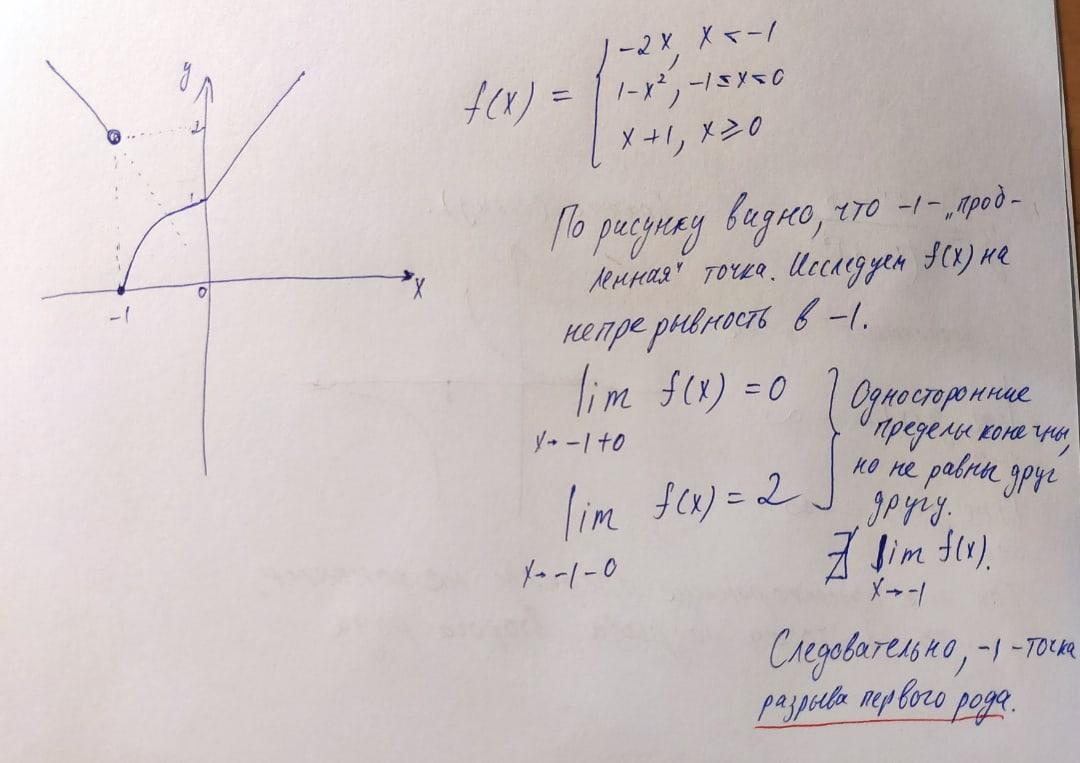 y
2
1
-1
0
x
f(x) = { -2x, x < -1
1-x², -1≤x<0
x+1, x⩾0
По рисунку видно, что -1-„проб-
ленная“ точка. Исследуем f(x) на
непрерывность в -1.
lim f(x) = 0
x→-1+0
lim f(x) = 2
x→-1-0
Односторонние
пределы конечны,
но не равны друг
другу.
∄ lim f(x).
x→-1
Следовательно, -1 - точка
разрыва первого рода.